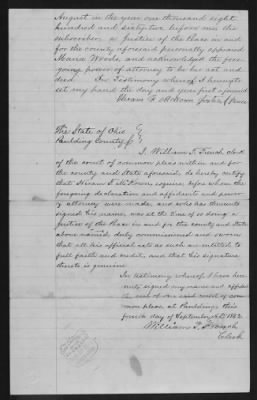 August in the year one thousand eight
hundred and sixty two before me the
subscriber a justice of the Peace in and
for the county aforesaid personally appeared
Maria Woods, and acknowledged the fore-
going power of attorney to be her act and
deed. In Testimony whereof I hereunto
set my hand the day and year first aforesaid
Hiram F. McKown Justice of Peace
The State of Ohio
Paulding County
I, William T. French clerk
of the court of common pleas within and for
the county and State aforesaid, do hereby certify
that Hiram F. McKown esquire before whom the
foregoing declaration and affidavits and power
of attorney were made, and who has thereunto
signed his name, was at the time of so doing a
justice of the Peace in and for the county and state
above named duly commissioned and sworn
that all his official acts as such are entitled to
full faith and credit, and that his signature
thereto is genuine
In testimony whereof I have here
unto signed my name and affixed
seal of our said court of com
mon pleas at Paulding this
fourth day of September A.D. 1862
William T. French
Clerk